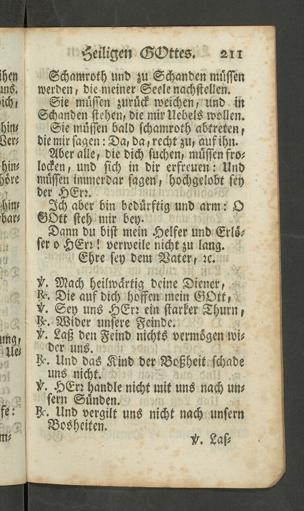 Heiligen GOttes. 211
Schamroth und zu Schanden müssen
werden, die meiner Seele nachstellen.
Sie müssen zurück weichen, und in
Schanden stehen, die mir Uebels wollen.
Sie müssen bald schamroth abtreten,
die mir sagen: Da, da, recht zu, auf ihn.
Aber alle, die dich suchen, müssen fro-
locken, und sich in dir erfreuen: Und
müssen immerdar sagen, hochgelobt sey
der HErr.
Ich aber bin bedürftig und arm: O
GOtt steh mir bey.
Dann du bist mein Helfer und Erlö-
ser o HErr! verweile nicht zu lang.
Ehre sey dem Vater, ꝛc.
℣. Mach heilwärtig deine Diener,
℟. Die auf dich hoffen mein GOtt,
℣. Sey uns HErr ein starker Thurn,
℟. Wider unsere Feinde.
℣. Laß den Feind nichts vermögen wi-
der uns.
℟. Und das Kind der Boßheit schade
uns nicht.
℣. HErr handle nicht mit uns nach un-
sern Sünden.
℟. Und vergilt uns nicht nach unsern
Bosheiten.
℣. Las-